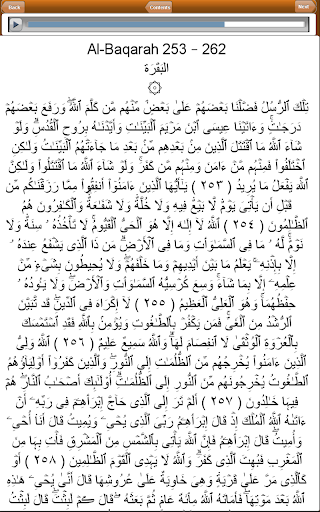 Back Contents Next
Al-Baqarah 253 - 262
البَقَرَة
تِلْكَ ٱلرُّسُلُ فَضَّلْنَا بَعْضَهُمْ عَلَىٰ بَعْضٍۢ مِّنْهُم مَّن كَلَّمَ ٱللَّهُ ۖ وَرَفَعَ بَعْضَهُمْ
دَرَجَٰتٍۢ ۚ وَءَاتَيْنَا عِيسَى ٱبْنَ مَرْيَمَ ٱلْبَيِّنَٰتِ وَأَيَّدْنَٰهُ بِرُوحِ ٱلْقُدُسِ ۗ وَلَوْ
شَآءَ ٱللَّهُ مَا ٱقْتَتَلَ ٱلَّذِينَ مِنۢ بَعْدِهِم مِّنۢ بَعْدِ مَا جَآءَتْهُمُ ٱلْبَيِّنَٰتُ وَلَٰكِنِ
ٱخْتَلَفُوا۟ فَمِنْهُم مَّنْ ءَامَنَ وَمِنْهُم مَّن كَفَرَ ۚ وَلَوْ شَآءَ ٱللَّهُ مَا ٱقْتَتَلُوا۟ وَلَٰكِنَّ
ٱللَّهَ يَفْعَلُ مَا يُرِيدُ ( ٢٥٣ ) يَٰٓأَيُّهَا ٱلَّذِينَ ءَامَنُوٓا۟ أَنفِقُوا۟ مِمَّا رَزَقْنَٰكُم مِّن
قَبْلِ أَن يَأْتِىَ يَوْمٌۭ لَّا بَيْعٌۭ فِيهِ وَلَا خُلَّةٌۭ وَلَا شَفَٰعَةٌۭ ۗ وَٱلْكَٰفِرُونَ هُمُ
ٱلظَّٰلِمُونَ ( ٢٥٤ ) ٱللَّهُ لَآ إِلَٰهَ إِلَّا هُوَ ٱلْحَىُّ ٱلْقَيُّومُ ۚ لَا تَأْخُذُهُۥ سِنَةٌۭ وَلَا
نَوْمٌۭ ۚ لَّهُۥ مَا فِى ٱلسَّمَٰوَٰتِ وَمَا فِى ٱلْأَرْضِ ۗ مَن ذَا ٱلَّذِى يَشْفَعُ عِندَهُۥٓ
إِلَّا بِإِذْنِهِۦ ۚ يَعْلَمُ مَا بَيْنَ أَيْدِيهِمْ وَمَا خَلْفَهُمْ ۖ وَلَا يُحِيطُونَ بِشَىْءٍۢ مِّنْ
عِلْمِهِۦٓ إِلَّا بِمَا شَآءَ ۚ وَسِعَ كُرْسِيُّهُ ٱلسَّمَٰوَٰتِ وَٱلْأَرْضَ ۖ وَلَا يَـُٔودُهُۥ
حِفْظُهُمَا ۚ وَهُوَ ٱلْعَلِىُّ ٱلْعَظِيمُ ( ٢٥٥ ) لَآ إِكْرَاهَ فِى ٱلدِّينِ ۖ قَد تَّبَيَّنَ
ٱلرُّشْدُ مِنَ ٱلْغَىِّ ۚ فَمَن يَكْفُرْ بِٱلطَّٰغُوتِ وَيُؤْمِنۢ بِٱللَّهِ فَقَدِ ٱسْتَمْسَكَ
بِٱلْعُرْوَةِ ٱلْوُثْقَىٰ لَا ٱنفِصَامَ لَهَا ۗ وَٱللَّهُ سَمِيعٌ عَلِيمٌ ( ٢٥٦ ) ٱللَّهُ وَلِىُّ
ٱلَّذِينَ ءَامَنُوا۟ يُخْرِجُهُم مِّنَ ٱلظُّلُمَٰتِ إِلَى ٱلنُّورِ ۖ وَٱلَّذِينَ كَفَرُوٓا۟ أَوْلِيَآؤُهُمُ
ٱلطَّٰغُوتُ يُخْرِجُونَهُم مِّنَ ٱلنُّورِ إِلَى ٱلظُّلُمَٰتِ ۗ أُو۟لَٰٓئِكَ أَصْحَٰبُ ٱلنَّارِ ۖ هُمْ
فِيهَا خَٰلِدُونَ ( ٢٥٧ ) أَلَمْ تَرَ إِلَى ٱلَّذِى حَآجَّ إِبْرَٰهِۦمَ فِى رَبِّهِۦٓ أَنْ
ءَاتَىٰهُ ٱللَّهُ ٱلْمُلْكَ إِذْ قَالَ إِبْرَٰهِۦمُ رَبِّىَ ٱلَّذِى يُحْىِۦ وَيُمِيتُ قَالَ أَنَا۠ أُحْىِۦ
وَأُمِيتُ ۖ قَالَ إِبْرَٰهِۦمُ فَإِنَّ ٱللَّهَ يَأْتِى بِٱلشَّمْسِ مِنَ ٱلْمَشْرِقِ فَأْتِ بِهَا مِنَ
ٱلْمَغْرِبِ فَبُهِتَ ٱلَّذِى كَفَرَ ۗ وَٱللَّهُ لَا يَهْدِى ٱلْقَوْمَ ٱلظَّٰلِمِينَ ( ٢٥٨ ) أَوْ
كَٱلَّذِى مَرَّ عَلَىٰ قَرْيَةٍۢ وَهِىَ خَاوِيَةٌ عَلَىٰ عُرُوشِهَا قَالَ أَنَّىٰ يُحْىِۦ هَٰذِهِ
ٱللَّهُ بَعْدَ مَوْتِهَا ۖ فَأَمَاتَهُ ٱللَّهُ مِا۟ئَةَ عَامٍۢ ثُمَّ بَعَثَهُۥ ۖ قَالَ كَمْ لَبِثْتَ ۖ قَالَ لَبِثْتُ